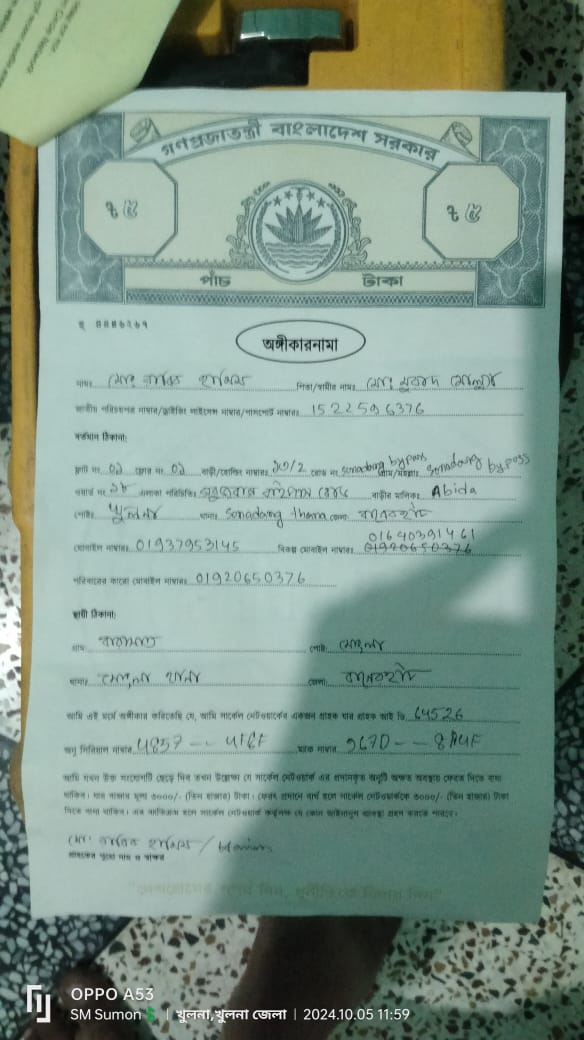 গণপ্রজাতন্ত্রী বাংলাদেশ সরকার
৳ ৫ ৳ ৫
পাঁচ টাকা
অঙ্গীকারনামা
নামঃ মোঃ পিতা/স্বামীর নামঃ মোঃ
জাতীয় পরিচয়পত্র নাম্বার/ড্রাইভিং লাইসেন্স নাম্বার/পাসপোর্ট নাম্বারঃ 1522596376
বর্তমান ঠিকানা:
ফ্ল্যাট নং ০১ ফ্লোর নং ০১ বাড়ী/হোল্ডিং নাম্বারঃ রোড নং sonadang bypass গ্রাম/মহল্লাঃ sonadang bypass
ওয়ার্ড নং ১৮ এলাকা পরিচিতিঃ বাইপাস রোড বাড়ীর মালিকঃ Abida
পোষ্টঃ খুলনা থানাঃ Sonadang thana জেলাঃ বাগেরহাট
01640391461
মোবাইল নাম্বারঃ 01937953145 বিকল্প মোবাইল নাম্বারঃ 01920650376
পরিবারের কারো মোবাইল নাম্বারঃ 01920650376
স্থায়ী ঠিকানা:
গ্রামঃ পোষ্টঃ মোংলা
থানাঃ মোংলা থানা জেলাঃ বাগেরহাট
আমি এই মর্মে অঙ্গীকার করিতেছি যে, আমি সার্কেল নেটওয়ার্কের একজন গ্রাহক যার গ্রাহক আই ডি 64526
অনু সিরিয়াল নাম্বার 4857 -- 41CF ম্যাক নাম্বার 967D -- 8A4F
আমি যখন উক্ত সংযোগটি ছেড়ে দিব তখন উল্লেখ্য যে সার্কেল নেটওয়ার্ক এর প্রদানকৃত অনুটি অক্ষত অবস্থায় ফেরত দিতে বাধ্য
থাকিব। যার বাজার মূল্য ৩০০০/- (তিন হাজার) টাকা। ফেরৎ প্রদানে ব্যর্থ হলে সার্কেল নেটওয়ার্ককে ৩০০০/- (তিন হাজার) টাকা
দিতে বাধ্য থাকিব। এর ব্যতিক্রম হলে সার্কেল নেটওয়ার্ক কর্তৃপক্ষ যে কোন আইনানুগ ব্যবস্থা গ্রহণ করতে পারবে।
মোঃ
গ্রাহকের পুরো নাম ও স্বাক্ষর
OPPO A53
SM Sumon | খুলনা,খুলনা জেলা | 2024.10.05 11:59